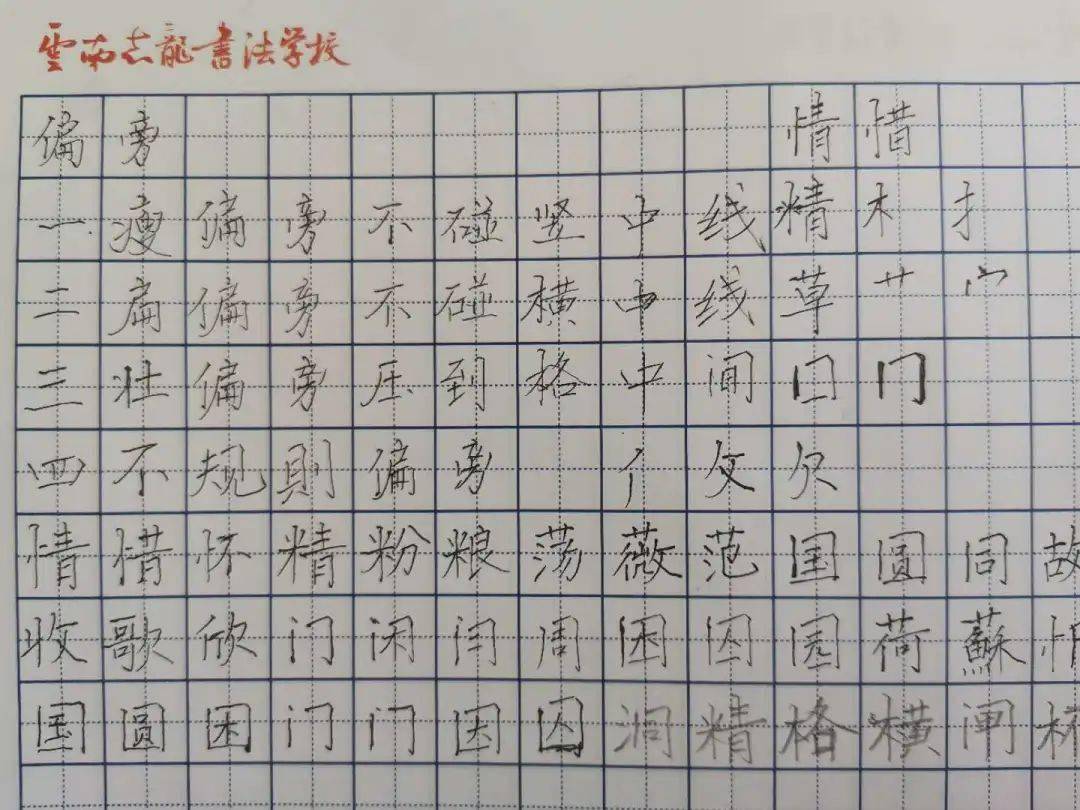 雲南志龍书法学校
偏旁 情惜
一.瘦偏旁不碰竖中线精木扌
二扁偏旁不碰横中线草艹宀
三壮偏旁压到格中间囗门
四不规則偏旁 亻攵欠
情惜怀精粉粮荡薇范国圆同故
收歌欣门闲闰周困因园荷蘇
国圆困门门因囚洞精格横闸